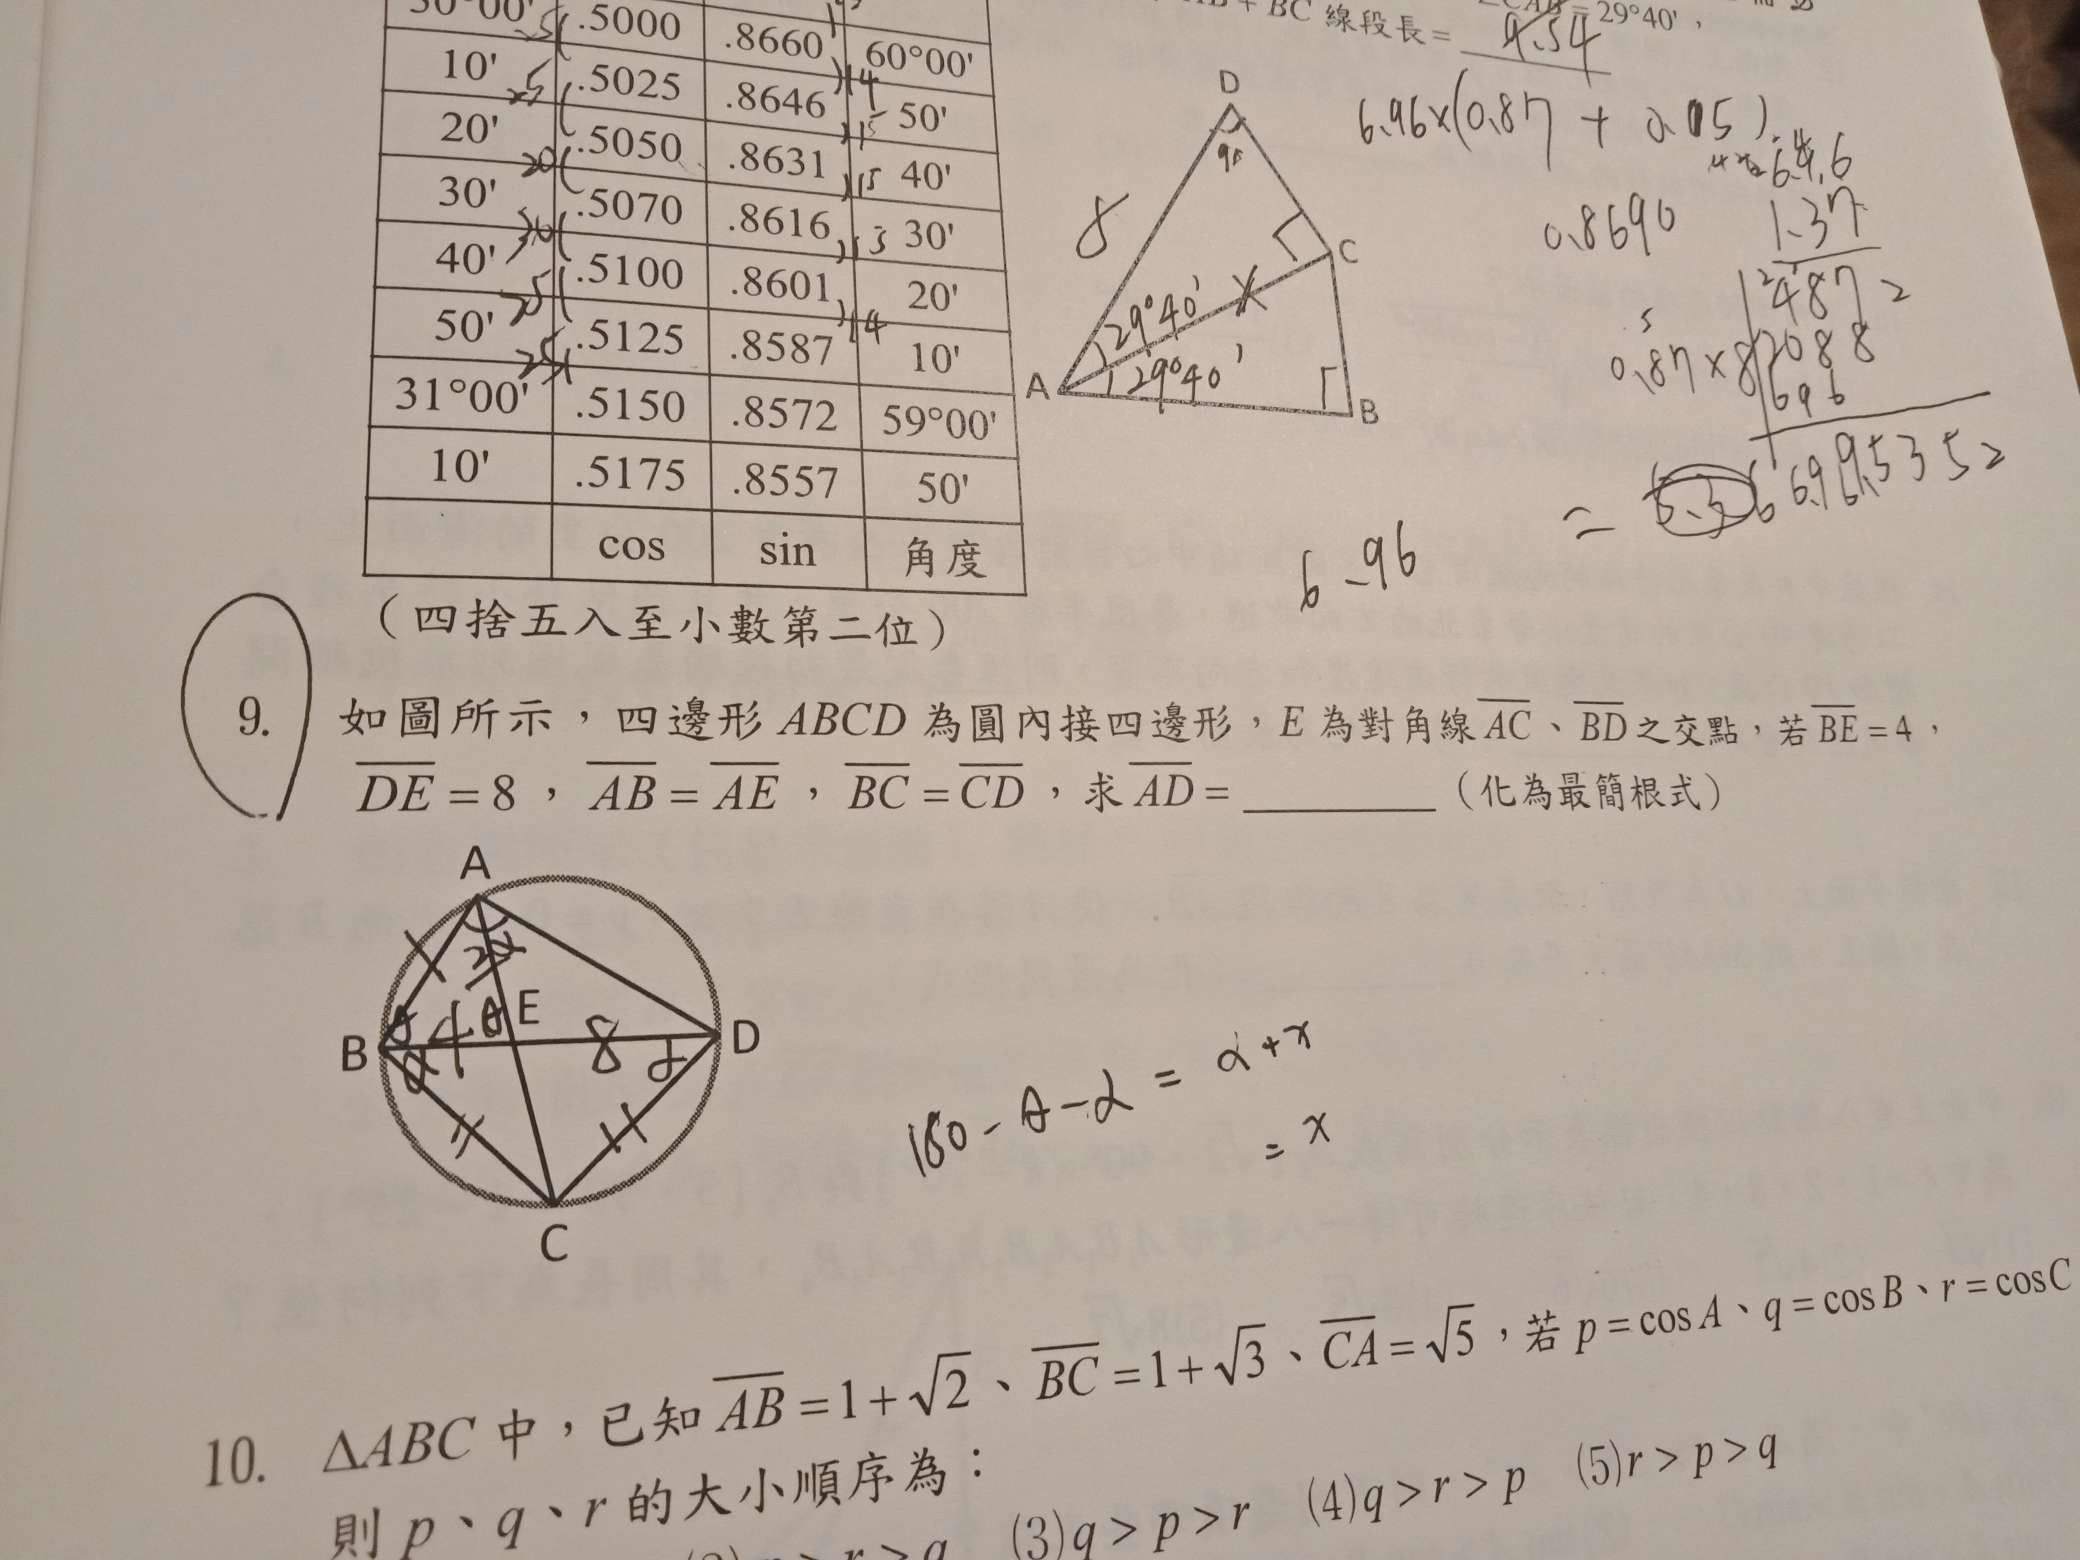 30°00' .5000 .8660 60°00'
10' .5025 .8646 50'
20' .5050 .8631 40'
30' .5070 .8616 30'
40' .5100 .8601 20'
50' .5125 .8587 10'
31°00' .5150 .8572 59°00'
10' .5175 .8557 50'
cos sin 角度
(四捨五入至小數第二位)
AB + BC 線段長= 4.54
∠CAB=29°40',
D
8
C
29°40'
X
A
29°40'
B
6.96×(0.87 +
0.8690
1.37
0.87×8
=
6.96
9. 如圖所示,四邊形 ABCD 為圓內接四邊形,E 為對角線 AC、BD 之交點,若 BE = 4,
DE = 8,AB = AE,BC = CD,求 AD = ________ (化為最簡根式)
A
B θ 4 θ E 8 α D
α
C
180 - θ - α = α + x
= x
10. ΔABC 中,已知 AB = 1+√2、BC = 1+√3、CA = √5,若 p = cos A、q = cos B、r = cos C
則 p、q、r 的大小順序為:
(3)q > p > r (4)q > r > p (5)r > p > q